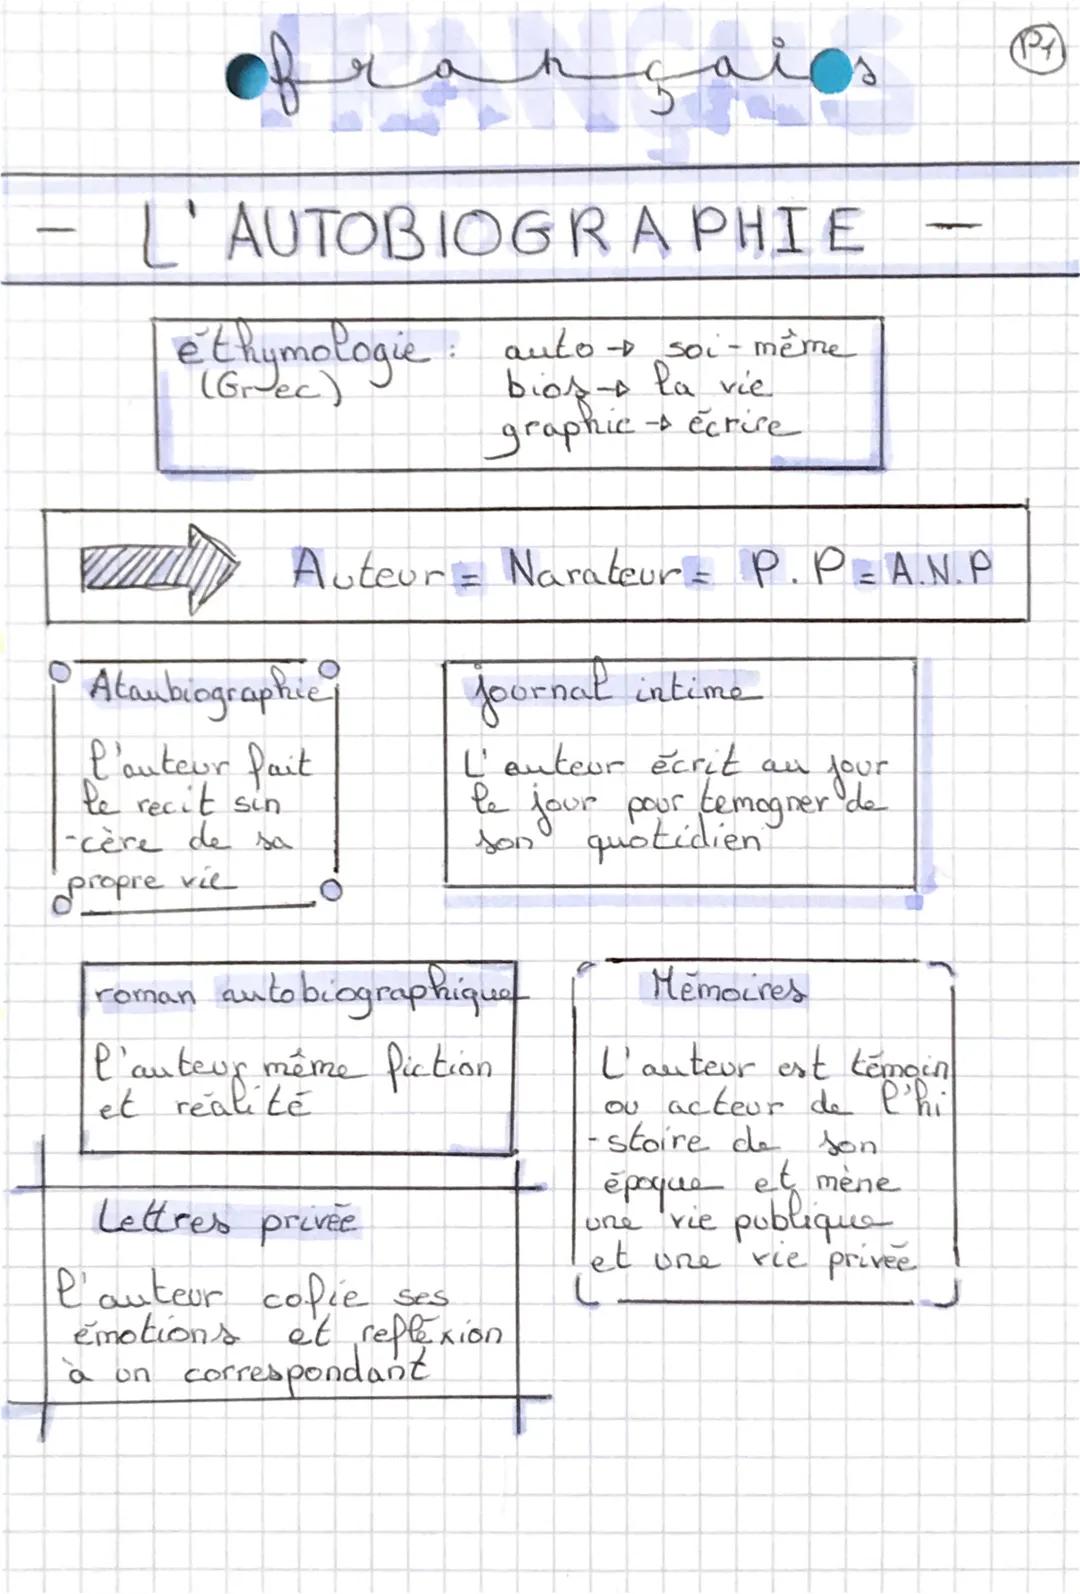 français
P1
- L'AUTOBIOGRAPHIE -
éthymologie : auto → soi-même
(Grec) bios → la vie
graphie → écrire
Auteur = Narateur = P.P = A.N.P
Ataubiographie
l'auteur fait
le recit sin
-cère de sa
propre vie
journal intime
L'auteur écrit au jour
le jour pour temogner de
son quotidien
roman autobiographique
l'auteur même fiction
et réalité
Mémoires
L'auteur est témoin
ou acteur de l'hi
-stoire de son
époque et mène
une vie publique
et une vie privée
Lettres privée
l'auteur copie ses
émotions et refléxion
à un correspondant